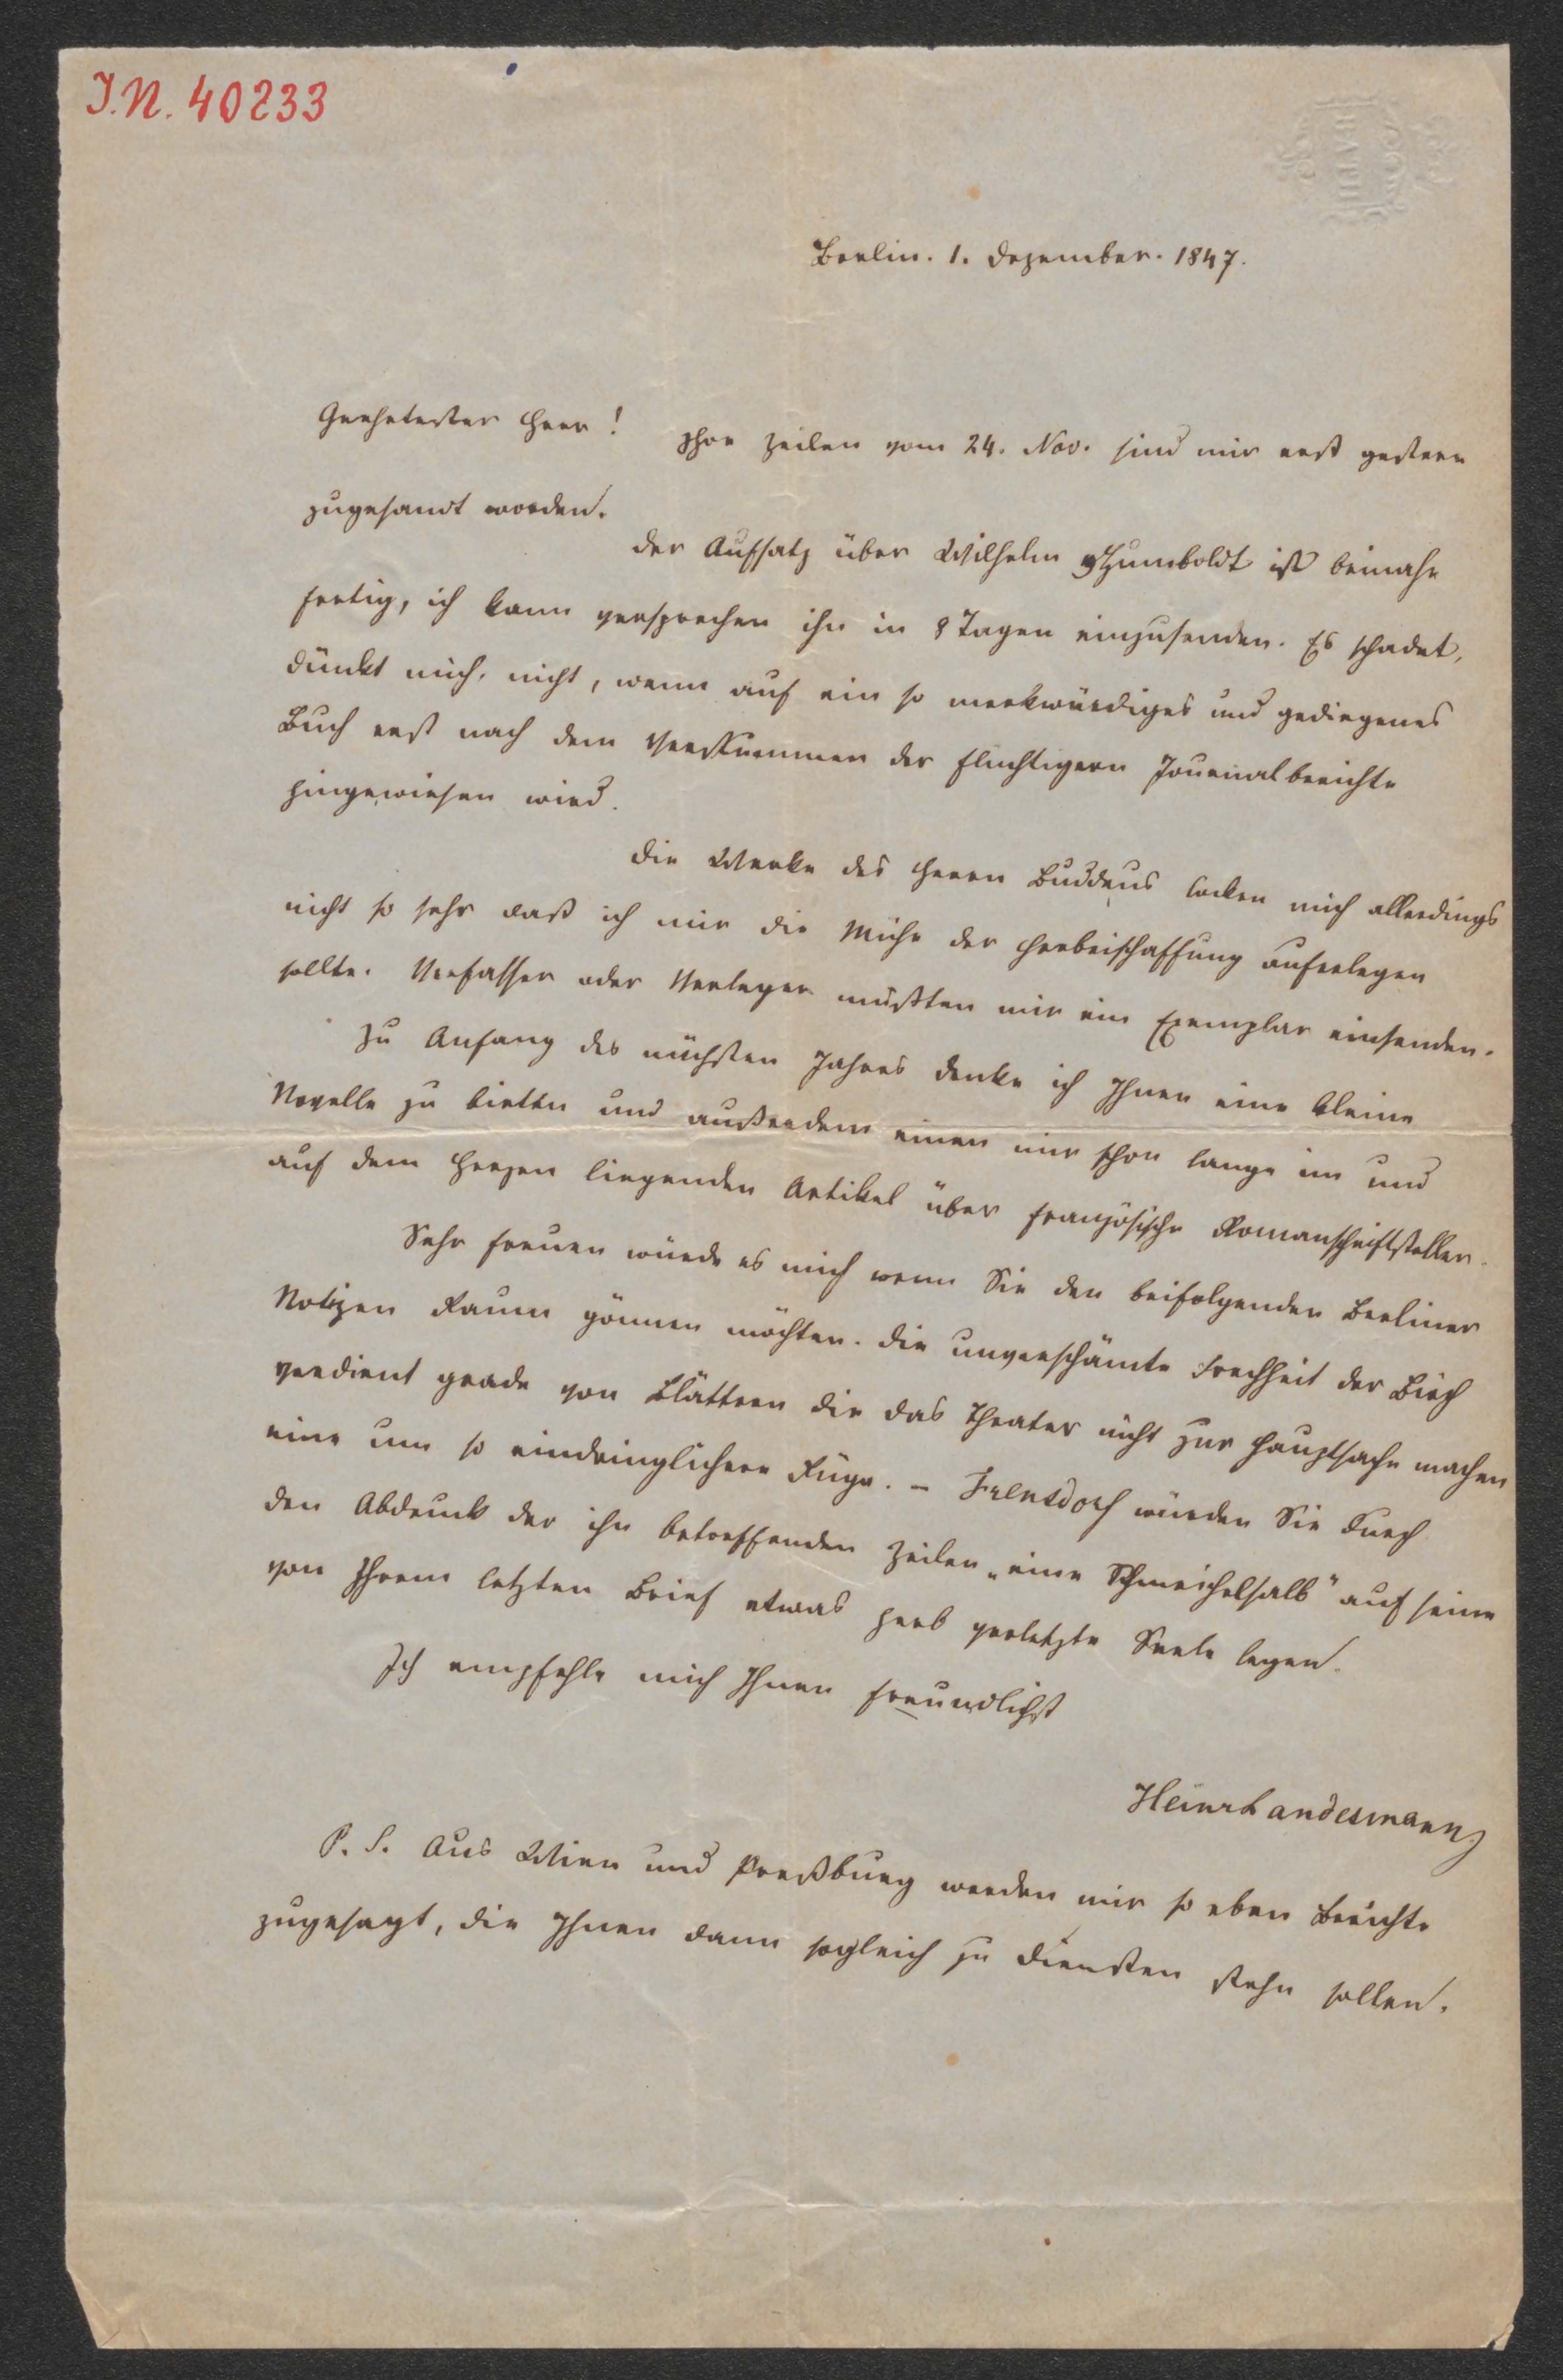 J.N. 40233
Berlin. 1. Dezember. 1847.
Geehrtester Herr!
Ihre Zeilen vom 24. Nov. sind mir erst gestern
zugesandt worden.
Der Aufsatz über Wilhelm v Humboldt ist beinahe
fertig, ich kann versprechen ihn in 8 Tagen einzusenden. Es schadet,
dünkt mich, nicht, wenn auf ein so merkwürdiges und gediegenes
Buch erst nach dem Verstummen der flüchtigern Journalberichte
hingewiesen wird.
Die Werke des Herrn Buddeus locken mich allerdings
nicht so sehr daß ich mir die Mühe der Herbeischaffung auferlegen
sollte. Verfasser oder Verleger müßten mir ein Exemplar einsenden.
Zu Anfang des nächsten Jahres denke ich Ihnen eine kleine
Novelle zu bieten und außerdem einen mir schon lange im und
auf dem Herzen liegenden Artikel über französische Romanschriftsteller.
Sehr freuen würde es mich wenn Sie den beifolgenden Berliner
Notizen Raum gönnen möchten. Die unverschämte Frechheit der Birch
verdient grade von Blättern die das Theater nicht zur Hauptsache machen
eine um so eindringlichere Rüge. – Frensdorf würden Sie durch
den Abdruck der ihn betreffenden Zeilen „eine Schmeichelsalb" auf seine
von Ihrem letzten Brief etwas herb verletzte Seele legen.
Ich empfehle mich Ihnen freundlichst
Heinr Landesmann
P. S. Aus Wien und Preßburg werden mir so eben Berichte
zugesagt, die Ihnen dann sogleich zu Diensten stehn sollen.